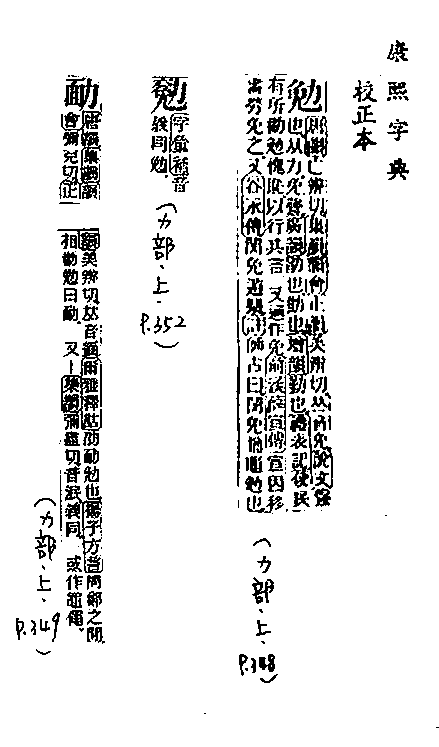 康熙字典
校正本
勉
唐韻亡辨切集韻韻會正韻美辨切𠀤音免說文彊
也从力免聲廣韻勗也勸也增韻勤也禮表記使民
有所勸勉愧恥以行其言又通作免前漢薛宣傳宣因移
書勞免之又谷永傳閔免遁樂註師古曰閔免猶黽勉也
(力部.上.
P.348)
字彙補音
義同勉
(力部.上.
P.352)
勔
唐韻集韻韻
會彌兗切正
韻美辨切𠀤音緬爾雅釋詁勔勉也揚子方言周鄭之閒
相勸勉曰勔又集韻彌盡切音泯義同或作僶
(力部.上.
P.349)